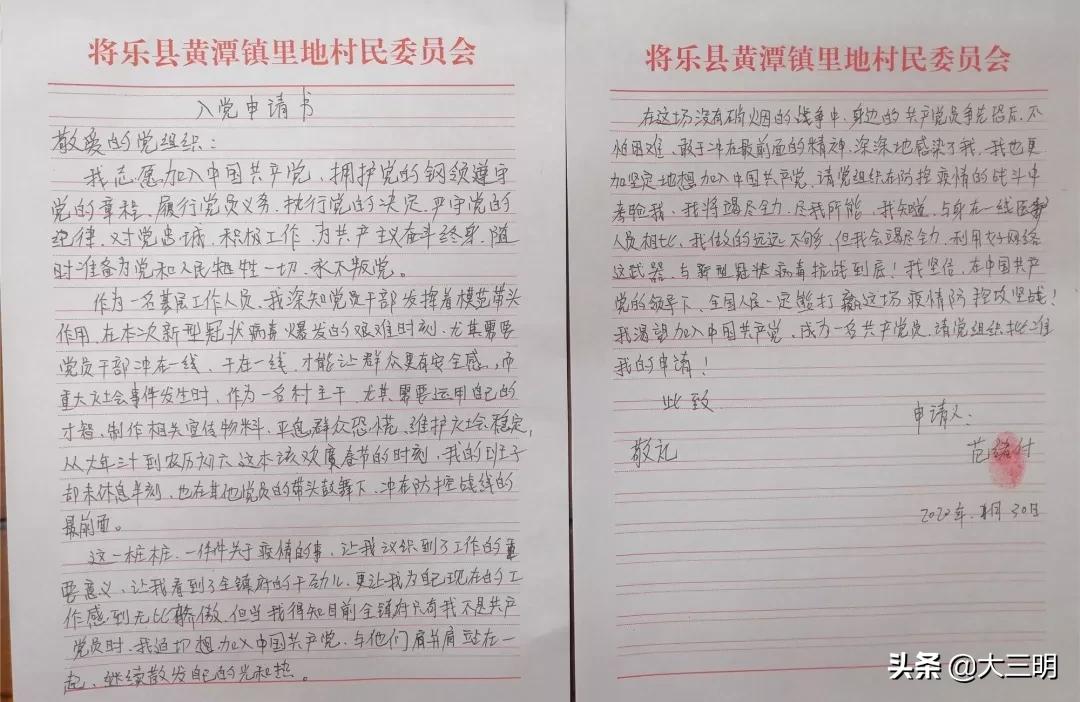 将乐县黄潭镇里地村民委员会
入党申请书
敬爱的党组织：
我志愿加入中国共产党，拥护党的钢领遵守
党的章程、履行党员义务、执行党的决定、严守党的
纪律、对党忠诚，积极工作，为共产主义奋斗终身，随
时准备为党和人民牺牲一切，永不叛党。
作为一名基层工作人员，我深知党员干部发挥着模范带头
作用，在本次新型冠状病毒爆发的艰难时刻，尤其需要
党员干部冲在一线、干在一线，才能让群众更有安全感，而
重大社会事件发生时，作为一名村主干，尤其需要运用自己的
才智，制作相关宣传物料，平息群众恐慌、维护社会稳定，
从大年三十到农历初六这本该欢度春节的时刻，我的班子
却未休息半刻，也在其他党员的带头鼓舞下，冲在防控战线的
最前面。
这一桩桩、一件件关于疫情的事，让我认识到了工作的重
要意义，让我看到了全镇府的干劲儿，更让我为自己现在的工
作感到无比骄傲，但当我得知目前全镇府只有我不是共产
党员时，我迫切想加入中国共产党，与他们肩并肩站在一
起，继续散发自己的光和热。
将乐县黄潭镇里地村民委员会
在这场没有硝烟的战争中，身边的共产党员争先恐后，不
怕困难、敢于冲在最前面的精神，深深地感染了我，我也更
加坚定地想加入中国共产党，请党组织在防控疫情的战斗中
考验我，我将竭尽全力，尽我所能，我知道，与身在一线医
人员相比，我做的远远不够，但我会竭尽全力，利用好网络
这武器，与新型冠状病毒抗战到底！我坚信，在中国共产
党的领导下，全国人民一定能打赢这场疫情防控攻坚战！
我渴望加入中国共产党，成为一名共产党员，请党组织批准
我的申请！
此致
敬礼
申请人：
范付
2020年 月30日
头条 @大三明